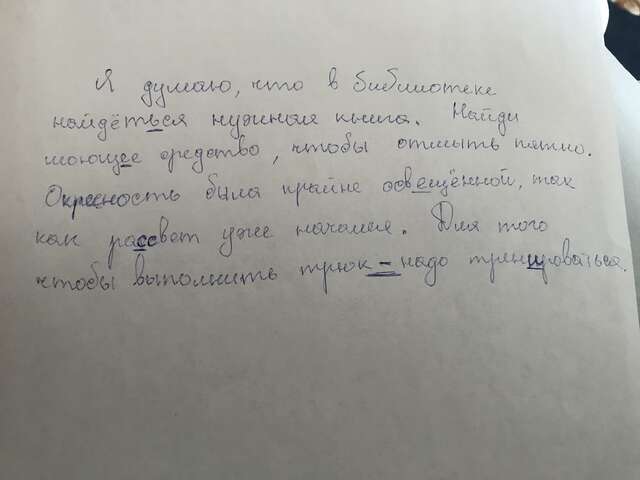 Я думаю, что в библиотеке
найдёться нужная книга. Найди
моющее средство, чтобы отмыть пятно.
Окресность была крайне освещённой, так
как рассвет уже начался. Для того
чтобы выполнить трюк - надо тренироваться.